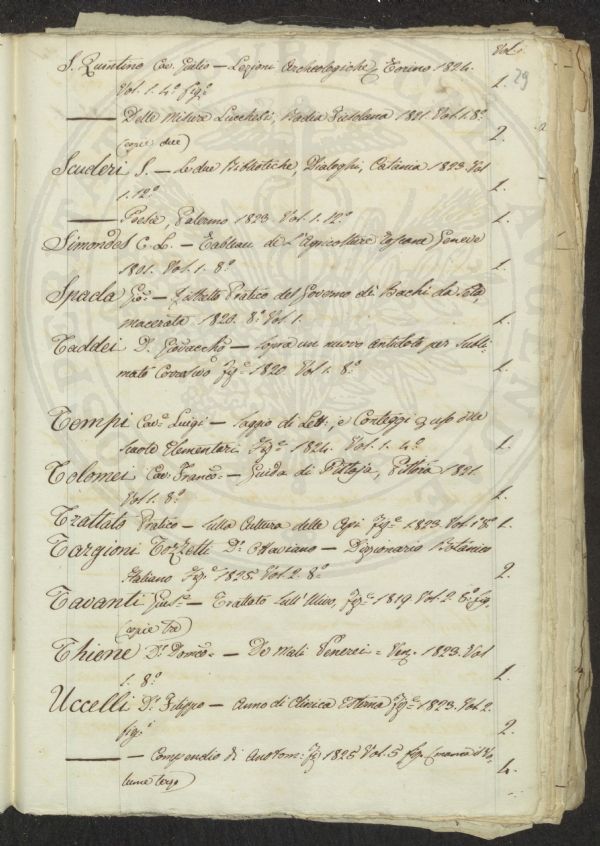 Vol.
29
S. Quintino Cav. Giulio — Lezioni Archeologiche, Torino 1824.
Vol. 1. 4.º fig.º 1.
——— Delle Misure Lucchesi, Badia Fiesolana 1821. Vol. 1. 8º
(copie due) 2.
Scuderi S. — Le due Biblioteche, Dialoghi, Catania 1823. Vol
1. 12.º 1.
——— Poesie, Palermo 1823 Vol. 1. 12.º 1.
Simondes C. L. — Tableau de l'Agricolture Toscane Geneve
1801. Vol. 1. 8.º 1.
Spada Gio. — Pratico del Governo di Bachi da
Macerata 1820. 8.º Vol. 1. 1.
Taddei D. Giovacch.º — Sopra un nuovo antidoto per Subli-
mato Corrosivo 1820. Vol. 1. 8.º 1.
Tempi Cav. Luigi — Saggio di Lett., e Conteggi p uso delle
Scuole Elementari 1824. Vol. 1. 4.º 1.
Tolomei Cav. Franc.º — Guida di Pistoja, Pistoia 1821.
Vol. 1. 8.º 1.
Trattato Pratico — Sulla Cultura delle Api 1823. Vol. 1. 8º 1.
Targioni Tozzetti D.r Ottaviano — Dizionario Botanico
Italiano 1825. Vol. 2. 8.º 2.
Tavanti Gius.e — Trattato Sull' Ulivo, 1819 Vol. 2. 8.º fig.
(copie tre)
Thiene D.r Dom.co — De Mali Venerei = Ven. 1823. Vol
1. 8.º 1.
Uccelli D.r Filippo — Anno di Clinica Esterna 1823. Vol. 2.
fig.º 2.
——— — Compendio di Anatom. 1825 Vol. 5 (manca il Vo-
lume terzo) 4.